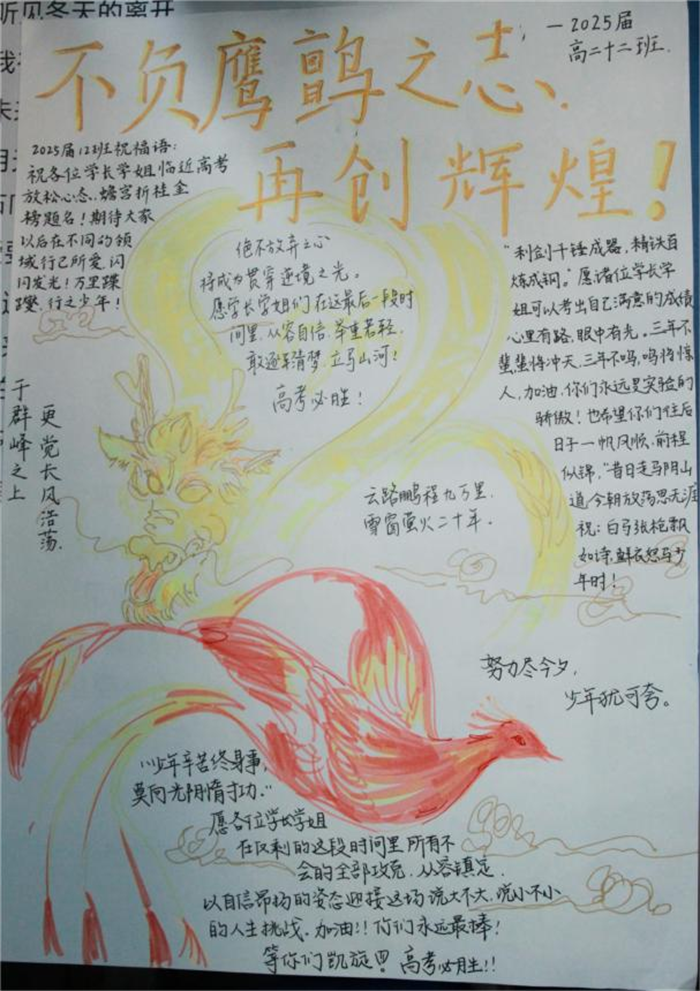 听见冬天的离开
不负鹰鹯之志、
再创辉煌！
—2025届
高二十二班.
2025届12班祝福语:
祝各位学长学姐临近高考
放松心态,蟾宫折桂金
榜题名！期待大家
以后在不同的领
域行己所爱,闪
闪发光！万里蹀
躞,行之少年！
绝不放弃之心
将成为贯穿逆境之光。
愿学长学姐们在这最后一段时
间里,从容自信,举重若轻.
敢逐青梦,立马山河！
高考必胜！
"利剑千锤成器,精铁百
炼成钢。"愿诸位学长学
姐可以考出自己满意的成绩
心里有路,眼中有光。三年不
蜚,蜚将冲天,三年不鸣,鸣将惊
人,加油,你们永远是实验的
骄傲！也希望你们往后
日子一帆风顺,前程
似锦,"昔日走马阴山
道,今朝放荡思无涯
祝:白马张枪飘
如诗,鲜衣怒马少
年时！
更觉长风浩荡.
于群峰之上
云路鹏程九万里,
雪窗萤火二十年。
努力尽今夕,
少年犹可夸。
"少年辛苦终身事,
莫向光阴惰寸功."
愿各位学长学姐
在仅剩的这段时间里所有不
会的全部攻克,从容镇定.
以自信昂扬的姿态迎接这场说大不大,说小不小
的人生挑战.加油!!你们永远最棒！
等你们凯旋!!! 高考必胜!!